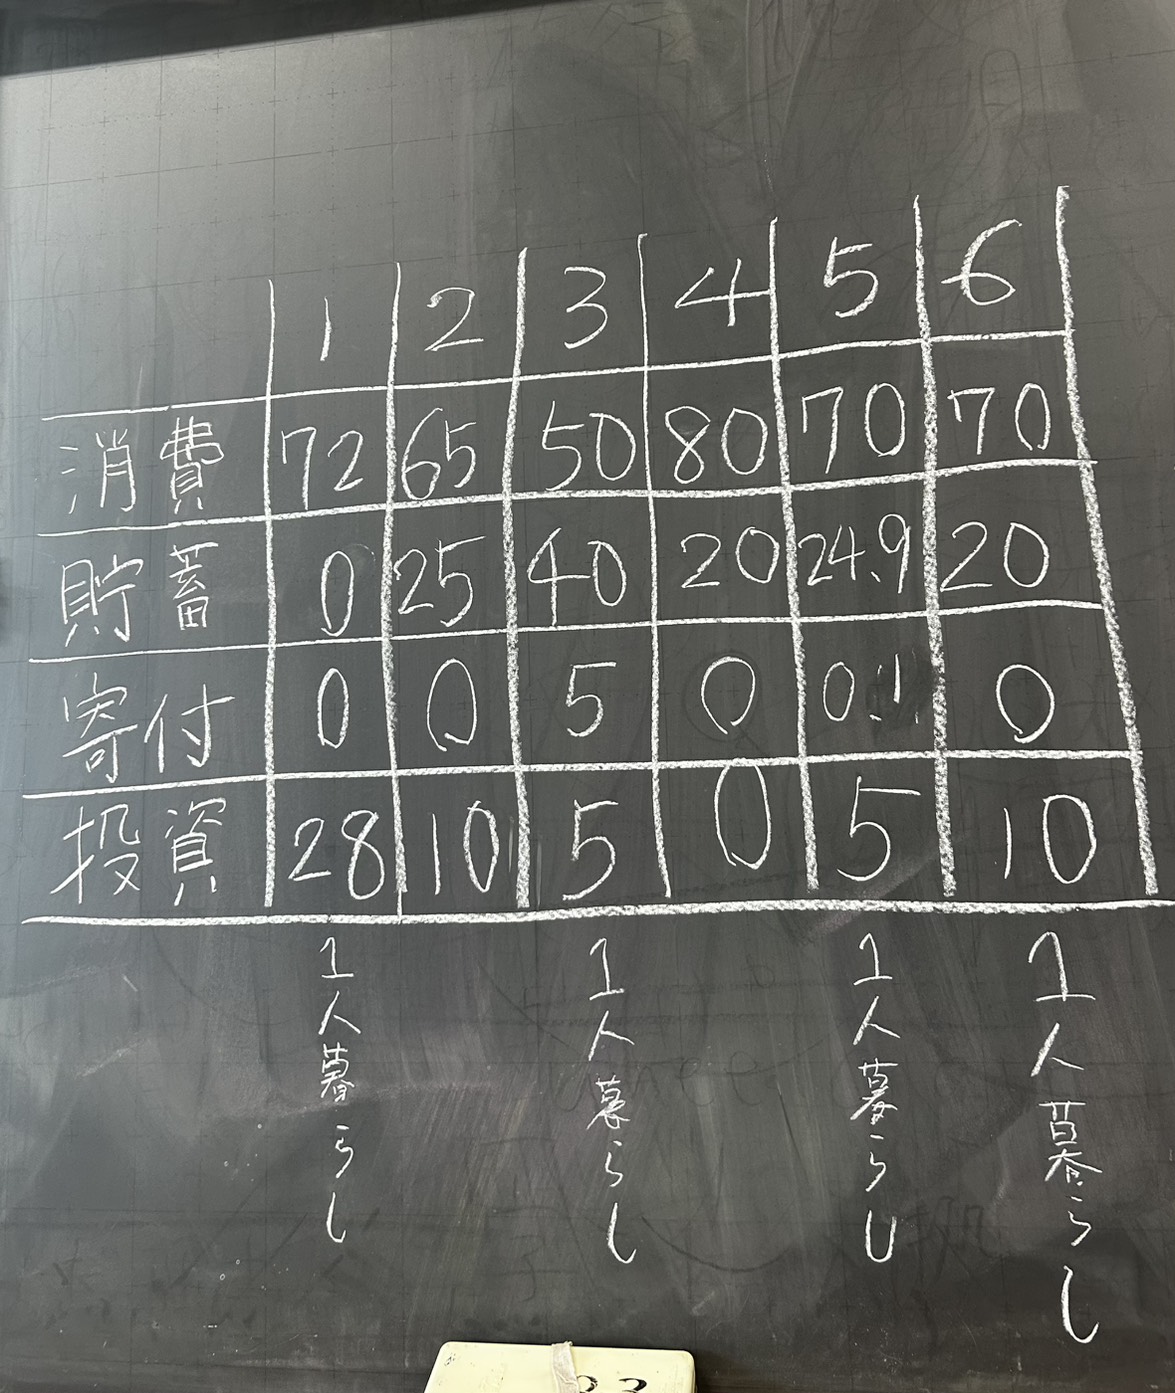 1 2 3 4 5 6
消費 72 65 50 80 70 70
貯蓄 0 25 40 20 24.9 20
寄付 0 0 5 0 0.1 0
投資 28 10 5 0 5 10
1人暮らし
1人暮らし
1人暮らし
1人暮らし